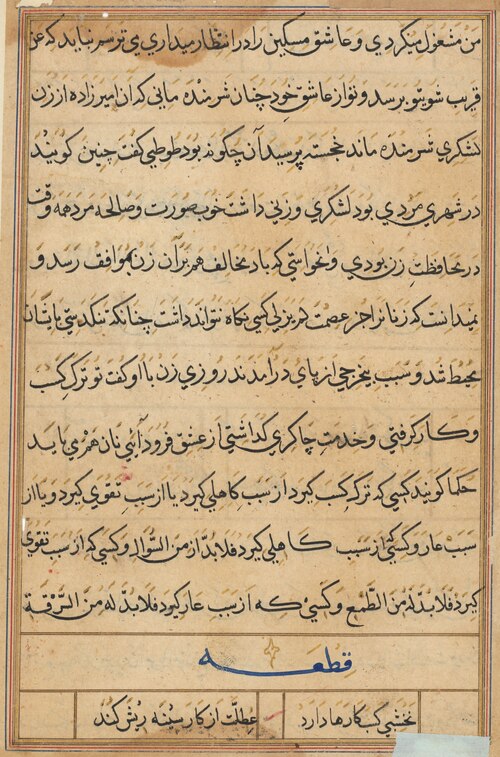 من مشغول میکردي و عاشق مسکین را در انتظار میداري مي ترسم نباید که عن
قریب شوي تو برسد و تو از عاشق خود چنان شرمنده ماني که ان امیر زاده از زن
لشکري شرمنده ماند خجسته پرسید آن چگونه بود طوطي کفت چنین کویند
در شهري مردي بود لشکري و زني داشت خوب صورت و صالحه مرد همه وقت
در محافظت زن بودي و نخواستي که باد مخالف هم بر آن زن موافق رسد و
نمیدانست که زنانرا جز عصمت کسي نکاه نتواند داشت چنانکه تنکدستي بایشان
محیط شد و سبب بیخرجي از پاي در آمدند روزي زن با او کفت تو ترک کسب
و کار کرفتي و خدمت چاکري کذاشتي از عشق فرود آئي نان هم مي باید
حکما کویند کسي که ترک کسب کیرد از سبب کاهلي کیرد یا از سبب تقوي کیرد و یا از
سبب عار و کسي که از سبب کاهلي کیرد فلا بد له من السوال و کسي که از سبب تقوي
کیرد فلا بد له من الطمع و کسي که از سبب عار کیرد فلا بد له من السرقة
قطعه
نخشبي کسب کارها دارد
عطلت از کار سینه ریش کند